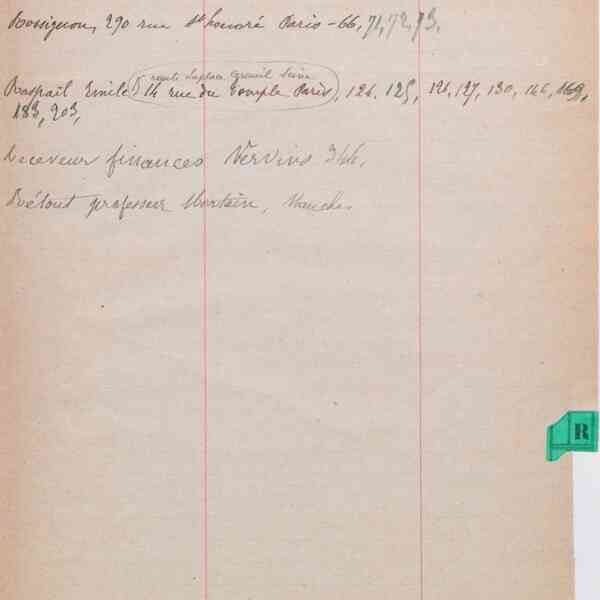 Rossignon, 290 rue St honoré Paris - 66, 71, 72, 73,
route Laplace Arcueil Seine
Raspail Emile 14 rue du Temple Paris, 126, 125, 126, 127, 130, 146, 169,
183, 203,
Receveur finances Vervins 344,
Rétout professeur Mortain, Manche
R